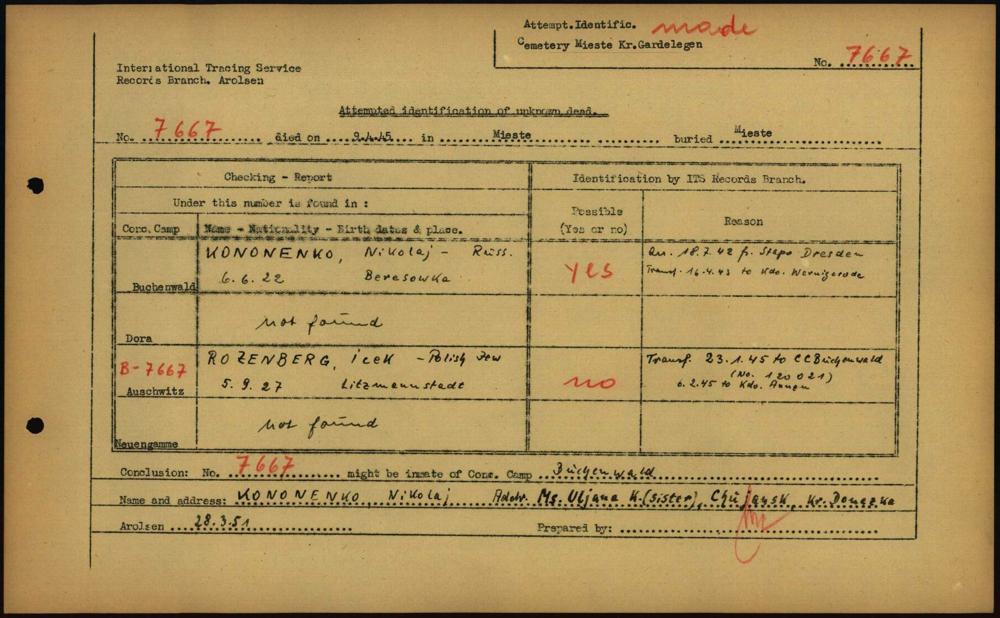 Attempt.Identific. made
Cemetery Mieste Kr.Gardelegen
No. 7667
International Tracing Service
Records Branch. Arolsen
Attempted identification of unknown dead.
No. 7667 died on 9.4.45 in Mieste buried Mieste
Checking - Report
Identification by ITS Records Branch.
Under this number is found in :
Conc. Camp
Name - Nationality - Birth dates & place.
Possible
(Yes or no)
Reason
Buchenwald
KONONENKO, Nikolaj - Russ.
6.6.22 Beresowka
yes
Arr. 18.7.42 fr. Stapo Dresden
Transf. 16.4.43 to Kdo. Wernigerode
Dora
not found
B-7667
Auschwitz
ROZENBERG, icek - Polish Jew
5.9.27 Litzmannstadt
no
Transf. 23.1.45 to CC Buchenwald
(No. 120021)
6.2.45 to Kdo. Annen
Neuengamme
not found
Conclusion: No. 7667 might be inmate of Conc. Camp Buchenwald
Name and address: KONONENKO, Nikolaj Addr. Ms. Uljana K. (sister), Kr.
Arolsen 28.3.51 Prepared by: